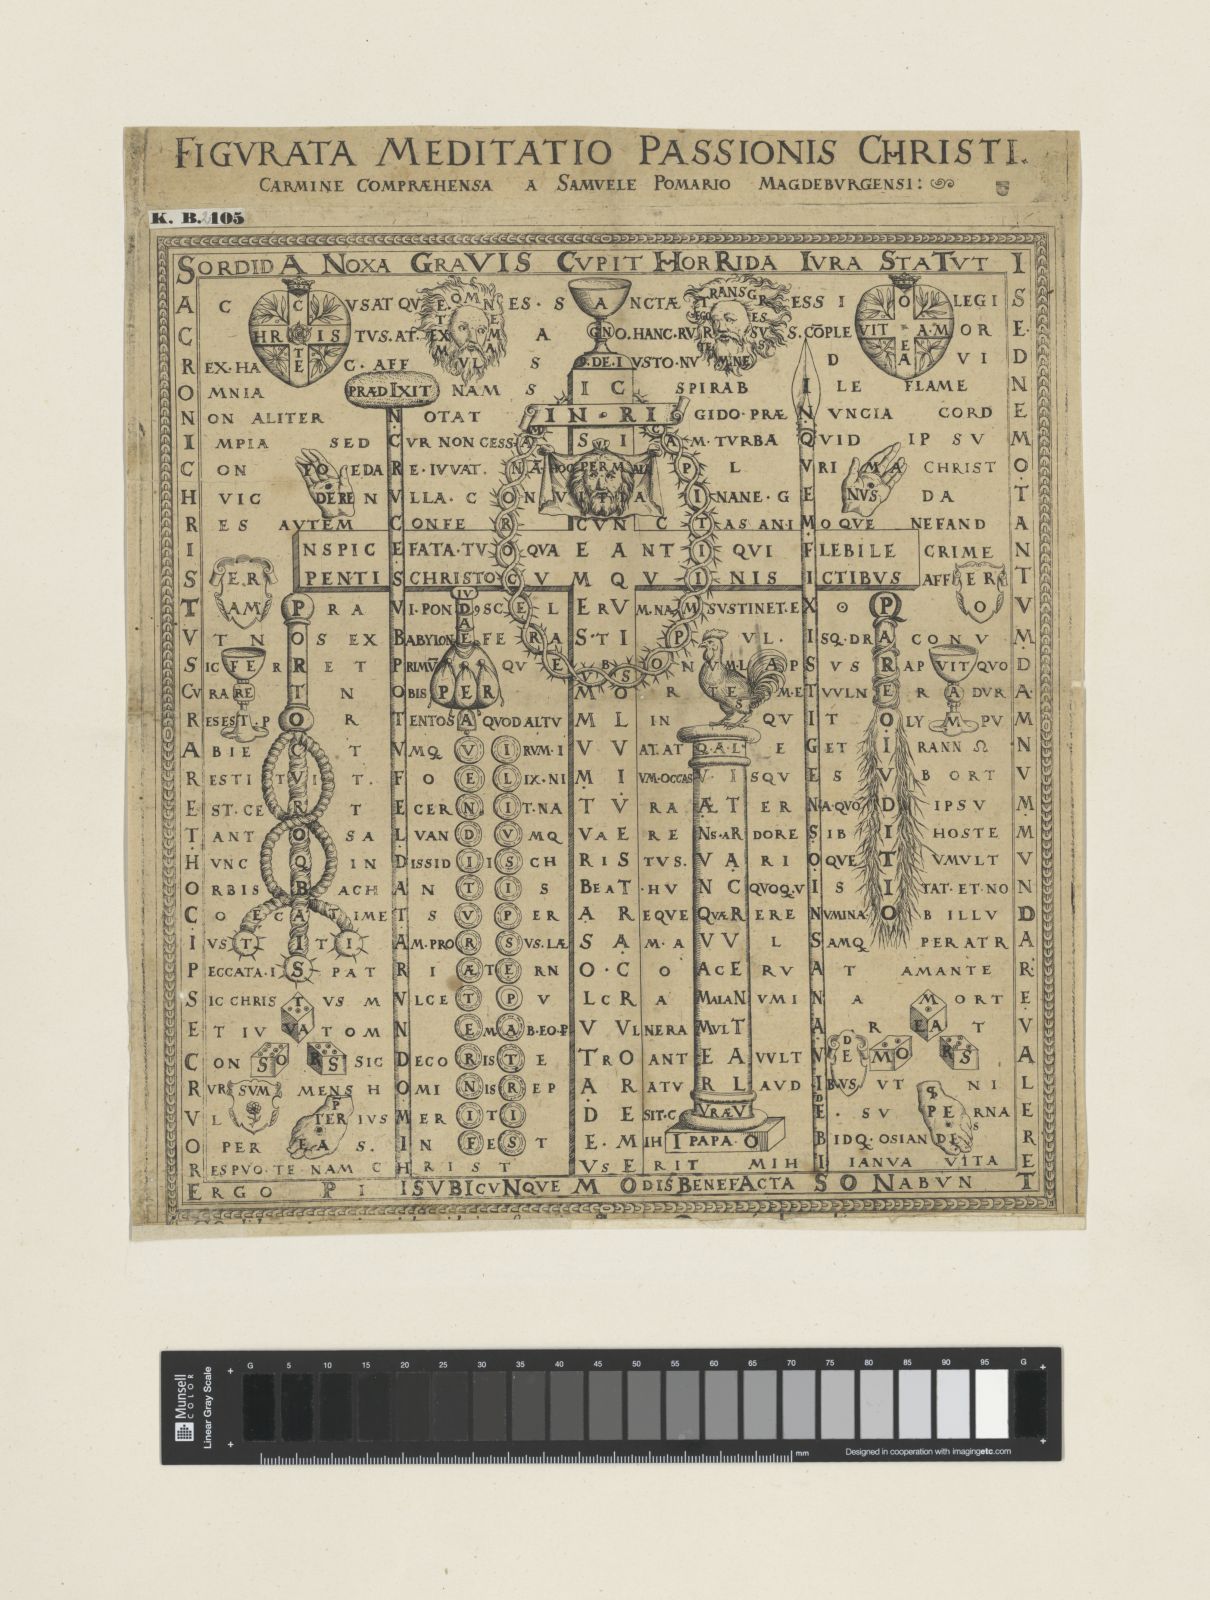 FIGVRATA MEDITATIO PASSIONIS CHRISTI.
CARMINE COMPRÆHENSA A SAMVELE POMARIO MAGDEBVRGENSI:
K. B. 2105
SORDIDA NOXA GRAVIS CVPIT HORRIDA IVRA STATVT I
C C VSAT QV OMN ES · S A NCTÆ TRANSGR ESS I O LEGI
HR IS TVS. AT. EX A GNO. HANC. RV S. CŌPLE VIT A. M OR
EX. HA C. AFF S D. DE. I VSTO. NV D A VI
MNIA PRÆDIXIT NAM S IC SPIRAB I LE FLAME
ON ALITER N OTAT IN · RI GIDO · PRÆ N VNCIA CORD
MPIA SED C VR NON CESS A S I A M · TVRBA Q VID IP SV
ON EDA R E · IVVAT. N A HOC PERM P L V RI MA CHRIST
VIC DERE N V LLA · C O N V A I NANE · G E NVS DA
ES AVTEM C ONFE R CVN C T AS ANI M OQVE NEFAND
NSPIC E FATA · TV O QVA E ANT I QVI F LEBILE CRIME
PENTI S CHRISTO C V M Q V I NIS I CTIBVS AFF ER
ER
AM P RA V I · PON D SC E L ERV M · NA M SVSTINET · E X O P O
T N O S EX B ABYLON E FE R A S · TI P VL · I SQ · DR A CONV
IC FE R R ET P RIMV QV E V S O NVM · L A P S VS R AP VIT QVO
CV RA RE T N O BIS PER M OR TES M · E T VVLN E R A DVR
ES EST · P O R T ENTOS A QVOD ALTV M L IN QV I T O LY M PV
ABIE C T V MQ V I RVM · I V V AT · AT Q · A · L · E G ET I RANN Ω
ESTI TVIT. F O E L IX · NI M I VM · OCCAS V I SQV E S V B ORT
EST · CE R T E CER N I T · NA T V RA ÆT ER N A · QVO D IPSV
TANT O SA L VAN D V MQ VAE RE NS · AR DORE S IB I HOSTE
HVNC Q IN D ISSID I IS CH RIS TVS. VA RI O QVE T VMVLT
ORBIS B ACH A N T I S BEAT · HV NC QVOQ · V I S I TAT · ET · NO
OECA TIME T S V P ER A R EQVE QVÆR ERE N VMINA O B ILLV
VS T I T I A M · PRO R S VS · LÆ S A M · A VV L S AMQ PERATR
ECCATA · I S PAT R I Æ TE RN O · C O ACE RV A T AMANTE
IC CHRIS T VS M V LCE T P V LCR A MALAN VMI N A M ORT
ET IV VA T OM N E MA B · EO · P V VLNERA MVLT A R EA T
CON SO RS SIC D ECO R IS T E TRO ANT EA VVLT V DE MO RS
VR SVM MENS H O MI N IS R EP A RATV RL AVD I BVS VT NI
L P TER IVS M ER I T I DE SIT · C VRÆV E · SV SPE RNA
PER EA S. I N F ES T E · M IH I PAPA · O B IDQ · OSIAN DE S
ESPVO · TE NAM C H RIST VSERIT MIH I IANVA VITA
ERGO PII ISVBICVNQVE MODIS BENEFACTA SONABVN T
SACRONICHRISTVSCRARETHOCIPSECRVOR
ISEDNEMOTANTVMDAMNVMMVNDAREVALERET
Munsell
COLOR
Linear Gray Scale
G 5 10 15 20 25 30 35 40 45 50 55 60 65 70 75 80 85 90 95 G
mm
Designed in cooperation with imagingetc.com